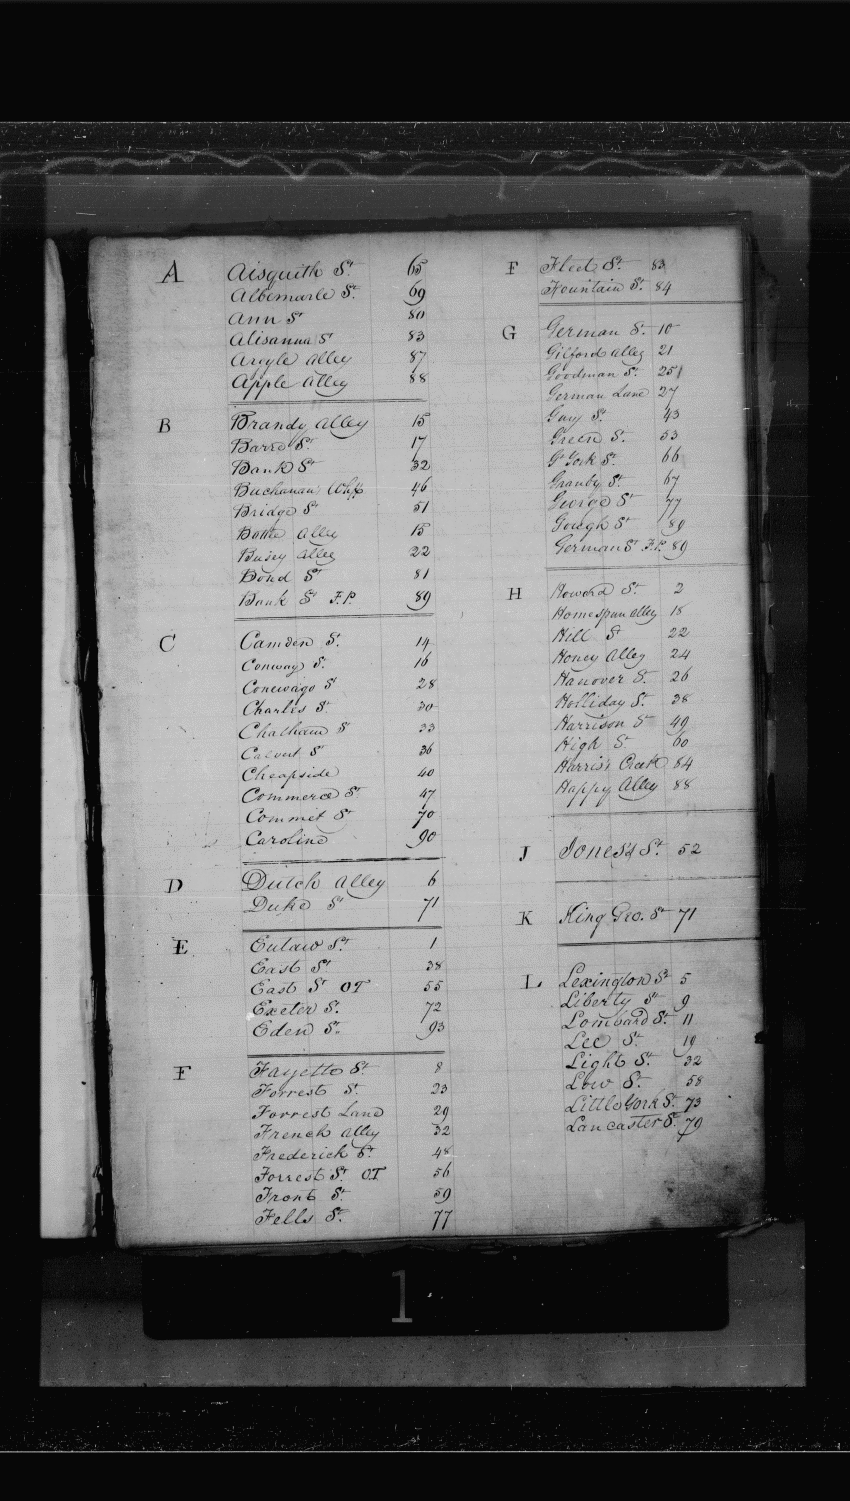 A Aisquith St. 65
Albemarle St. 69
Ann St 80
Alisanna St 83
Argyle Alley 87
Apple Alley 88
B Brandy Alley 15
Barre St. 17
Bank St 32
Buchanans Whf 46
Bridge St 51
Bottle Alley 15
Busey Alley 22
Bond St 81
Bank St F.P. 89
C Camden St. 14
Conway St. 16
Conewago St 28
Charles St. 30
Chatham St 33
Calvert St 36
Cheapside 40
Commerce St 47
Commet St 70
Caroline 90
D Dutch Alley 6
Duke St 71
E Eutaw St. 1
East St 38
East St OT 55
Exeter St. 72
Eden St. 93
F Fayette St. 8
Forrest St. 23
Forrest Lane 29
French Alley 32
Frederick St. 48
Forrest St. OT 56
Front St. 59
Fells St. 77
F Fleet St. 83
Fountain St. 84
G German St. 10
Gilford Alley 21
Goodman St. 25
German Lane 27
Gay St. 43
Green St. 53
Gt York St. 66
Granby St. 67
George St 77
Gough St 89
German St F.P. 89
H Howard St. 2
Homespun Alley 18
Hill St 22
Honey Alley 24
Hanover St. 26
Holliday St. 38
Harrison St 49
High St 60
Harris's Creek 84
Happy Alley 88
J Jones St. 52
K King Geo. St 71
L Lexington St 5
Liberty St 9
Lombard St. 11
Lee St. 19
Light St. 32
Low St. 58
Little York St. 73
Lancaster St. 79
1